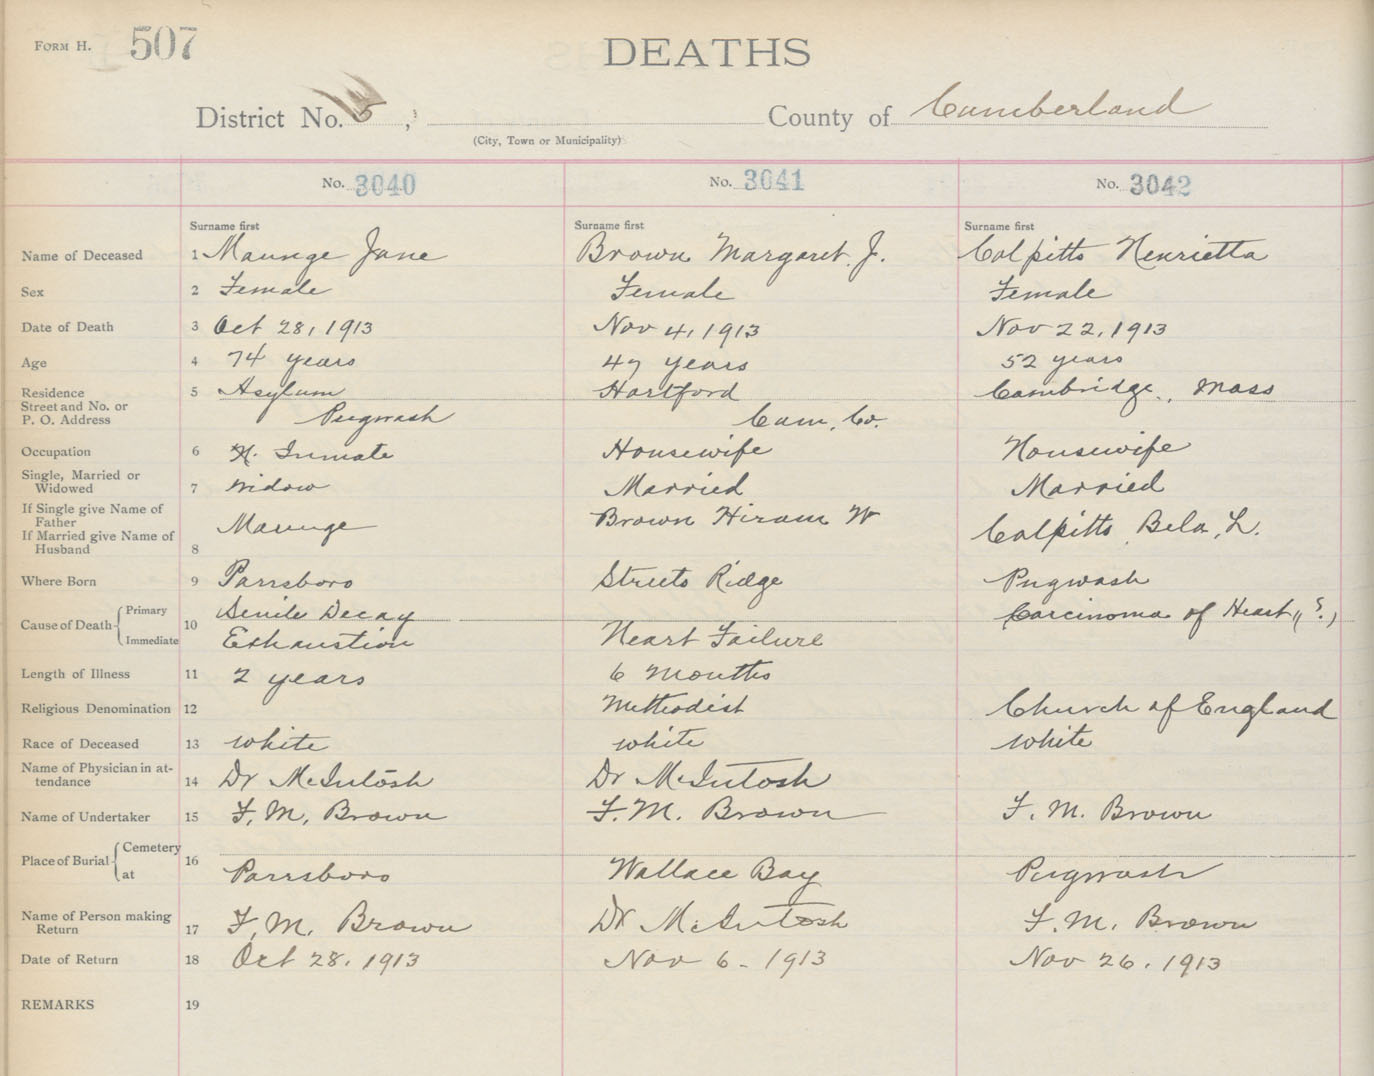 FORM H. 507
DEATHS
District No. 5, County of Cumberland
(City, Town or Municipality)
No. 3040 No. 3041 No. 3042
Surname first Surname first Surname first
Name of Deceased 1 Maunge Jane Brown Margaret J. Colpitts Henrietta
Sex 2 Female Female Female
Date of Death 3 Oct 28, 1913 Nov 4, 1913 Nov 22, 1913
Age 4 74 years 47 years 52 years
Residence 5 Asylum Hartford Cambridge, Mass
Street and No. or
P. O. Address Pugwash Cum. Co.
Occupation 6 Inmate Housewife Housewife
Single, Married or
Widowed 7 Widow Married Married
If Single give Name of
Father Maunge Brown Hiram W Colpitts, Bela, L.
If Married give Name of
Husband 8
Where Born 9 Parrsboro Streets Ridge Pugwash
Cause of Death Primary 10 Senile Decay Carcinoma of Heart (?)
Immediate Exhaustion Heart Failure
Length of Illness 11 2 years 6 Months
Religious Denomination 12 Methodist Church of England
Race of Deceased 13 white white white
Name of Physician in at-
tendance 14 Dr McIntosh Dr McIntosh
Name of Undertaker 15 F. M. Brown F. M. Brown F. M. Brown
Place of Burial Cemetery 16
at Parrsboro Wallace Bay Pugwash
Name of Person making
Return 17 F. M. Brown Dr McIntosh F. M. Brown
Date of Return 18 Oct 28. 1913 Nov 6 - 1913 Nov 26. 1913
REMARKS 19